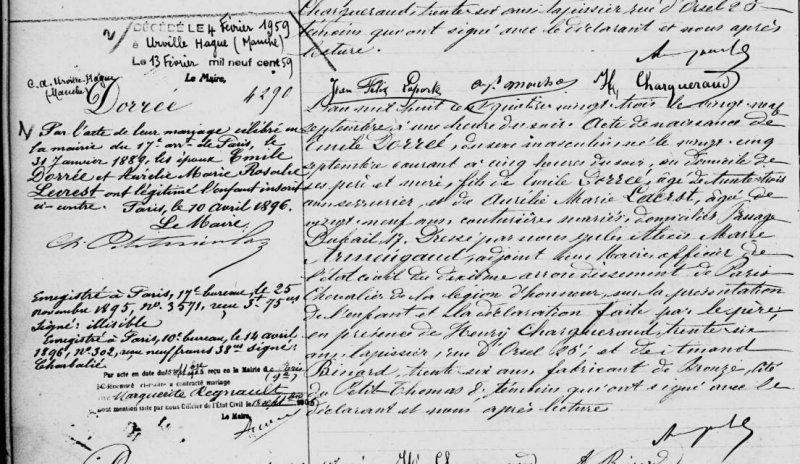 Charqueraud, trente six ans tapissier rue d'Orsel 25
témoins qui ont signé avec le déclarant et nous après
lecture.
Jean Félix Laporte Hy Charqueraud
DÉCÉDÉ LE 4 Février 1959
à Urville Hague (Manche)
Le 13 Février mil neuf cent 59
Le Maire,
C. à. Urville-Hague
(Manche)
Dorrée
4290
Par l'acte de leur mariage célébré en
la mairie du 17e arrt de Paris, le
31 Janvier 1889, les époux Emile
Dorrée et Aurélie Marie Rosalie
Lecrest ont légitimé l'enfant inscrit
ci-contre. Paris, le 10 avril 1896.
Le Maire,
Enregistré à Paris, 17e bureau, le 25
novembre 1895, no 3571, reçu 3f 75cs
Signé: illisible
Enregistré à Paris, 10e bureau, le 14 avril
1896, no 302, reçu neuf francs 38cs signé:
Charbalié
Par acte en date du reçu en la Mairie de Paris
a contracté mariage
Marguerite Regnault
mention faite par nous Officier de l'État Civil le
Le Maire,
L'an mil huit cent quatre vingt trois le vingt
septembre à une heure du soir. Acte de naissance de
Emile Dorrée, du sexe masculin né le vingt cinq
septembre courant à cinq heures du soir, au domicile de
ses père et mère, fils de Emile Dorrée, âgé de trente trois
ans serrurier, et de Aurélie Marie, âgée de
vingt neuf ans couturière mariés, domiciliés Passage
17. Dressé par nous Jules Alexis Marie
Armaigaud, adjoint au Maire, officier de
l'état civil du dixième arrondissement de Paris
Chevalier de la légion d'honneur, sur la présentation
de l'enfant et la déclaration faite par le père
en présence de Henry Charqueraud, trente six
ans, tapissier, rue d'Orsel 25, et de Armand
Bénard, trente six ans, fabricant de Bronze, cité
du Petit Thomas 8, témoins qui ont signé avec le
déclarant et nous après lecture